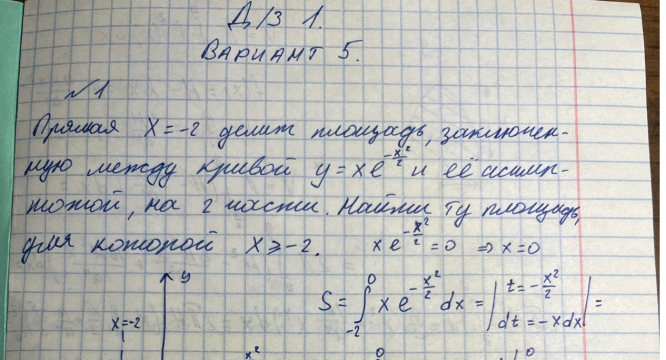 Д/З 1.
ВАРИАНТ 5.
№1
Прямая x=-2 делит площадь, заключен-
ную между кривой y=xe^{-x²/2} и её асимп-
тотой, на 2 части. Найти ту площадь,
для которой x≥-2. xe^{-x²/2}=0 ⇒ x=0
y
S=∫_{-2}^{0} x e^{-x²/2} dx = |t=-x²/2
dt=-xdx| =
x=-2